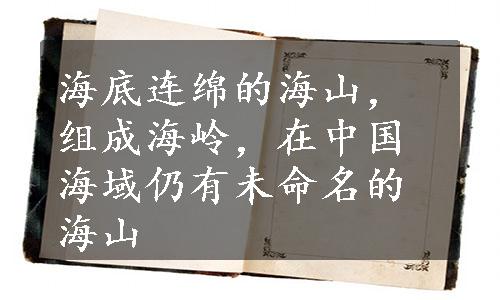 海底连绵的海山，
组成海岭，在中国
海域仍有未命名的
海山